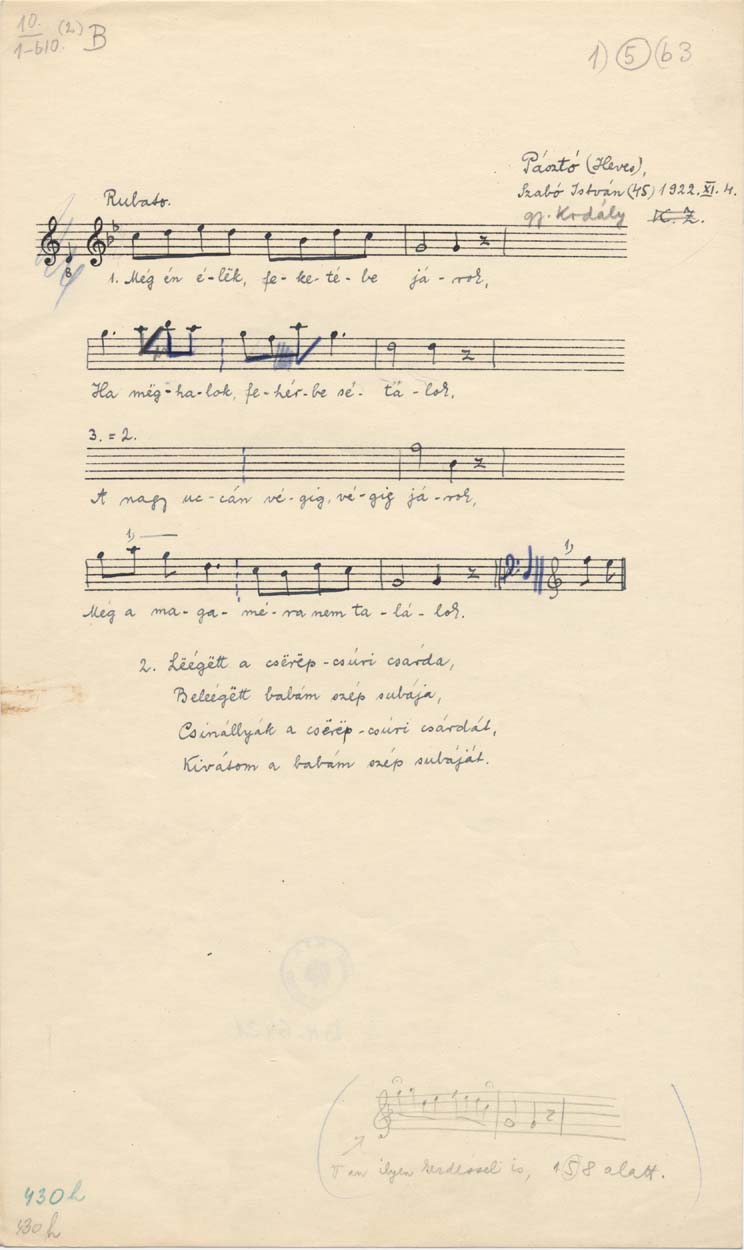 10. (2.) B
1-610.
1) 5 (b3
Pásztó (Heves),
Szabó István (45) 1922. XI. 4.
gy. Kodály K. Z.
Rubato.
8
1. Még én é-lëk, fe-ke-té-be já-rok,
Ha még-ha-lok, fe-hér-be sé-tá-lok,
3. = 2.
A nagy uc-cán vé-gig, vé-gig já-rok,
1)
1)
Még a ma-ga-mé-ra nem ta-lá-lok.
2. Lëégëtt a csërëp-csúri csárda,
Beleégëtt babám szép subája,
Csinállyák a csërëp-csúri csárdát,
Kivátom a babám szép subáját.
Van ilyen kezdéssel is, 158 alatt.
430h
430h